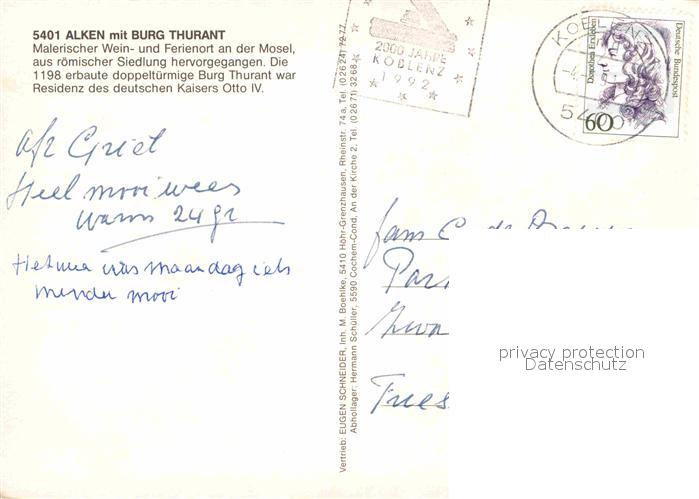 5401 ALKEN mit BURG THURANT
Malerischer Wein- und Ferienort an der Mosel,
aus römischer Siedlung hervorgegangen. Die
1198 erbaute doppeltürmige Burg Thurant war
Residenz des deutschen Kaisers Otto IV.
2000 JAHRE
KOBLENZ
1992
KOBLENZ
5400
Dorothea Erxleben
Deutsche Bundespost
60
Vertrieb: EUGEN SCHNEIDER, Inh. M. Boehlke, 5410 Höhr-Grenzhausen, Rheinstr. 74 a, Tel. (0 26 24) 72 77
Abhollager: Hermann Schüller, 5590 Cochem-Cond, An der Kirche 2, Tel. (0 26 71) 32 68
afz Griet
Heel mooi weer
warm 24 gr
maandag iets
minder mooi
fam
privacy protection
Datenschutz